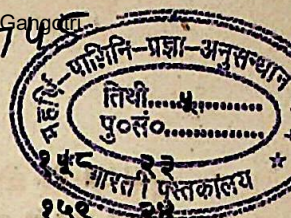 Gangotri
महर्षि-पाणिनि-प्रज्ञा-अनुसन्धान
तिथी....५.............
पु०सं०...............
भारती पुस्तकालय
१५८ २२
१५९ २४